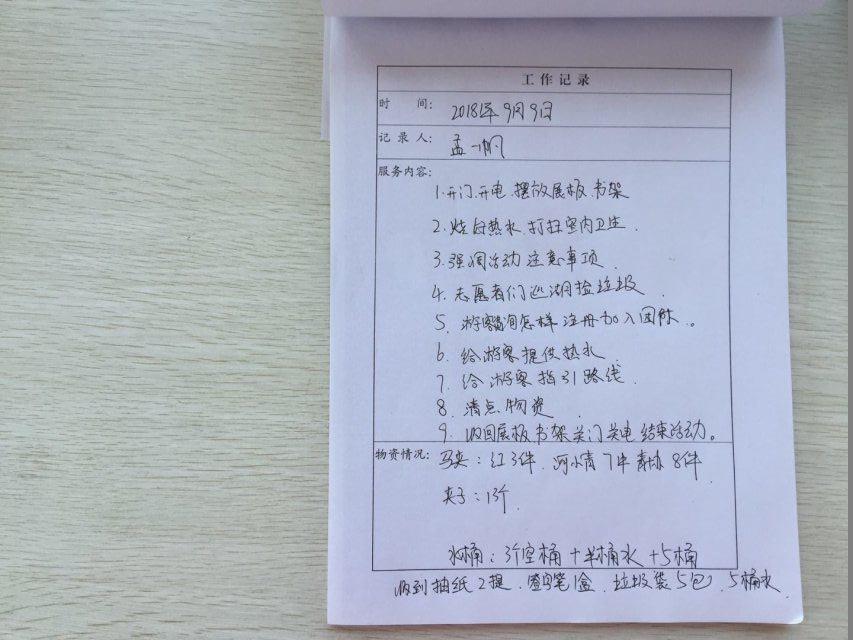 工作记录
时 间: 2018年9月9日
记录人: 孟一帆
服务内容:
1.开门.开电.摆放展板.书架
2.烧白热水.打扫室内卫生.
3.强调活动注意事项.
4.志愿者们巡湖捡垃圾.
5.游客询问怎样注册加入团队。
6.给游客提供热水.
7.给游客指引路线.
8.清点物资.
9.收回展板书架关门关电结束活动。
物资情况: 马夹:红3件.河小青7件青协8件
夹子:13个
水桶:3个空桶+半桶水+5桶
收到抽纸2提.签字笔1盒.垃圾袋5包.5桶水.